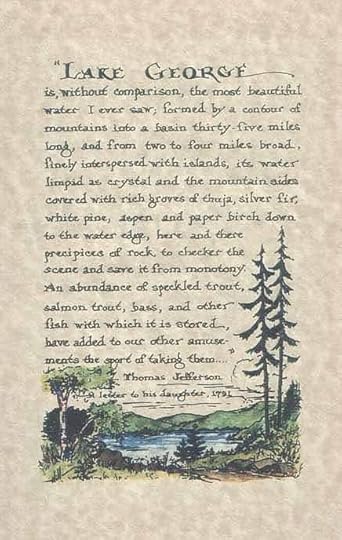 "LAKE GEORGE
is, without comparison, the most beautiful
water I ever saw; formed by a contour of
mountains into a basin thirty-five miles
long, and from two to four miles broad,
finely interspersed with islands, its water
limpid as crystal and the mountain sides
covered with rich groves of thuja, silver fir,
white pine, aspen and paper birch down
to the water edge, here and there
precipices of rock to checker the
scene and save it from monotony.
An abundance of speckled trout,
salmon trout, bass, and other
fish with which it is stored,
have added to our amuse-
ments the sport of taking them...."
Thomas Jefferson
A letter to his daughter, 1791